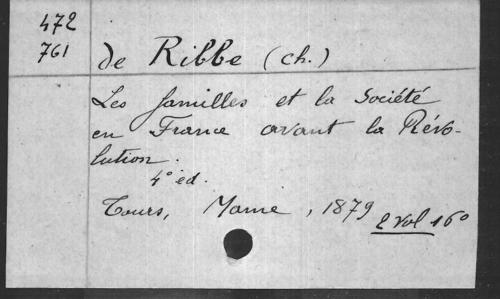 472
761
de Ribbe (ch.)
Les familles et la Société
en France avant la Révo-
lution.
4° éd.
Tours, Mame, 1879
2 vol 16°